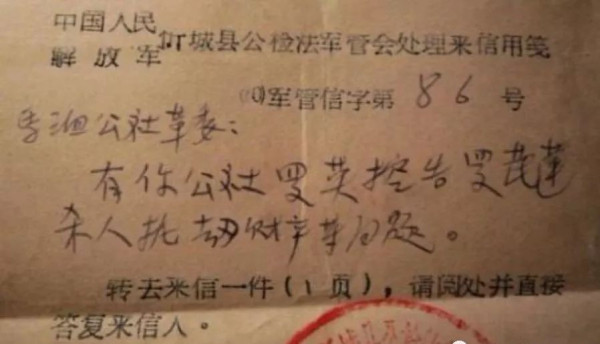 中国人民
解放军 城县公检法军管会处理来信用笺
军管信字第 86 号
公社革委：
有你公社罗英控告罗茂莲
杀人抢劫财等问题。
转去来信一件（1页），请阅处并直接
答复来信人。